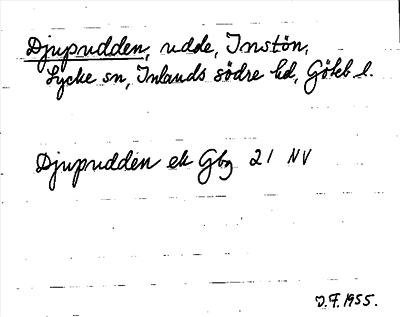 Djupudden, udde, Instön,
Lycke sn, Inlands södre hd, Göteb l.
Djupudden ek Gbg 21 NV
J.F. 1955.